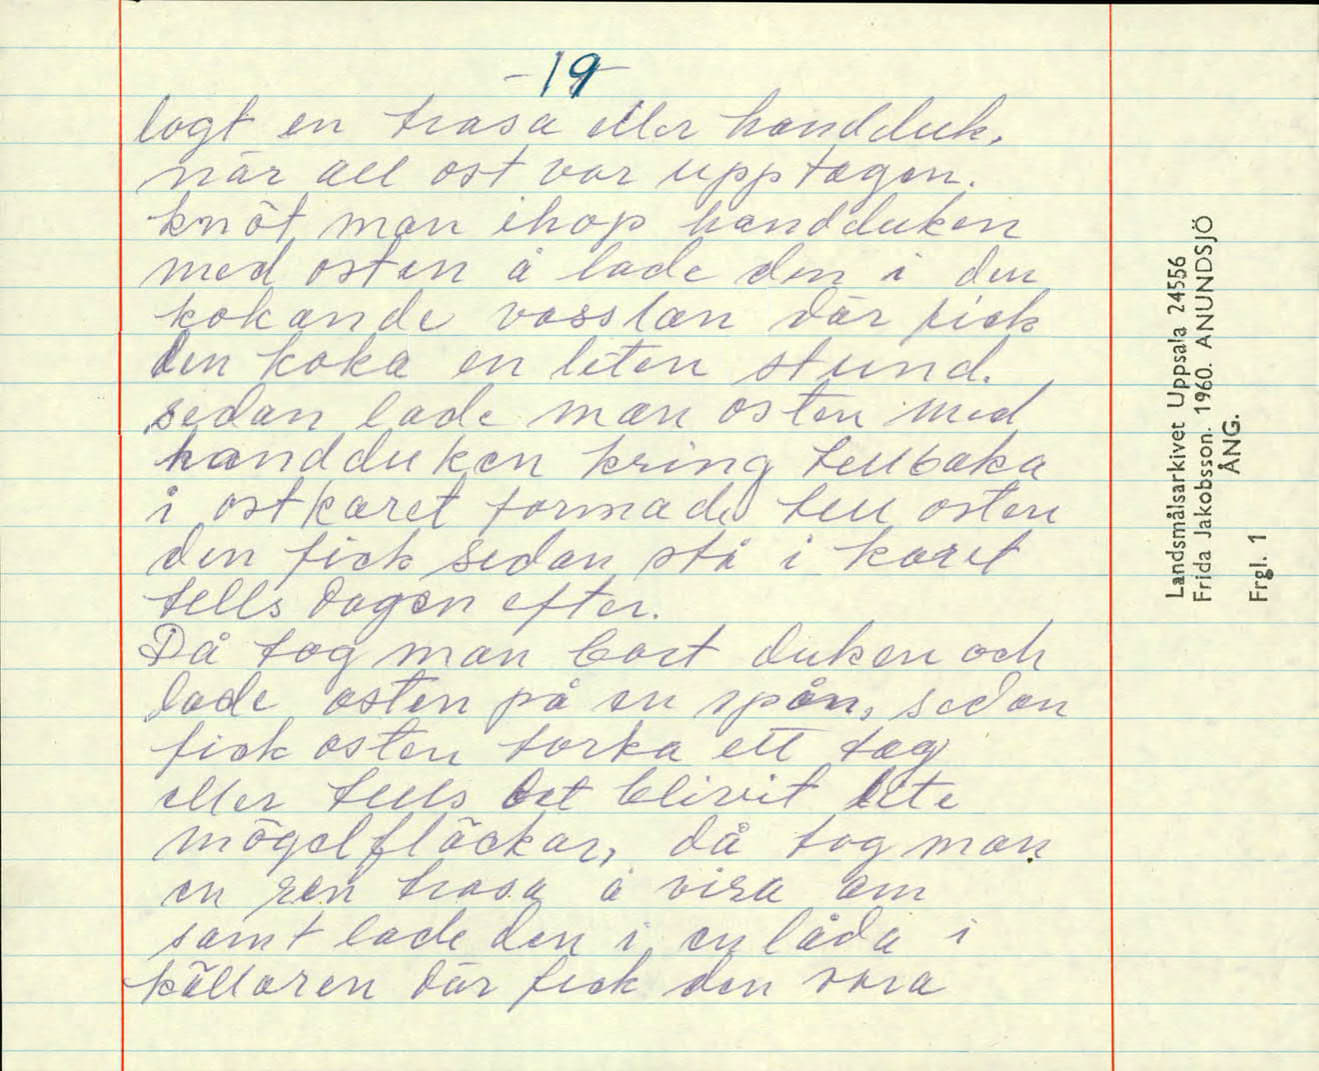 -19-
lagt en trasa eller handduk,
när all ost var upptagen.
knöt man ihop handduken
med osten å lade den i den
kokande vasslan där fick
den koka en liten stund.
sedan lade man osten med
handduken kring tillbaka
i ostkaret formade till osten
den fick sedan stå i karet
tills dagen efter.
Då tog man bort duken och
lade osten på en spån, sedan
fick osten torka ett tag
eller tills det blivit lite
mögelfläckar, då tog man
en ren trasa å vira om
samt lade den i en låda i
källaren där fick den vara
Landsmålsarkivet Uppsala 24556
Frida Jakobsson. 1960. ANUNDSJÖ
ÅNG.
Frgl. 1